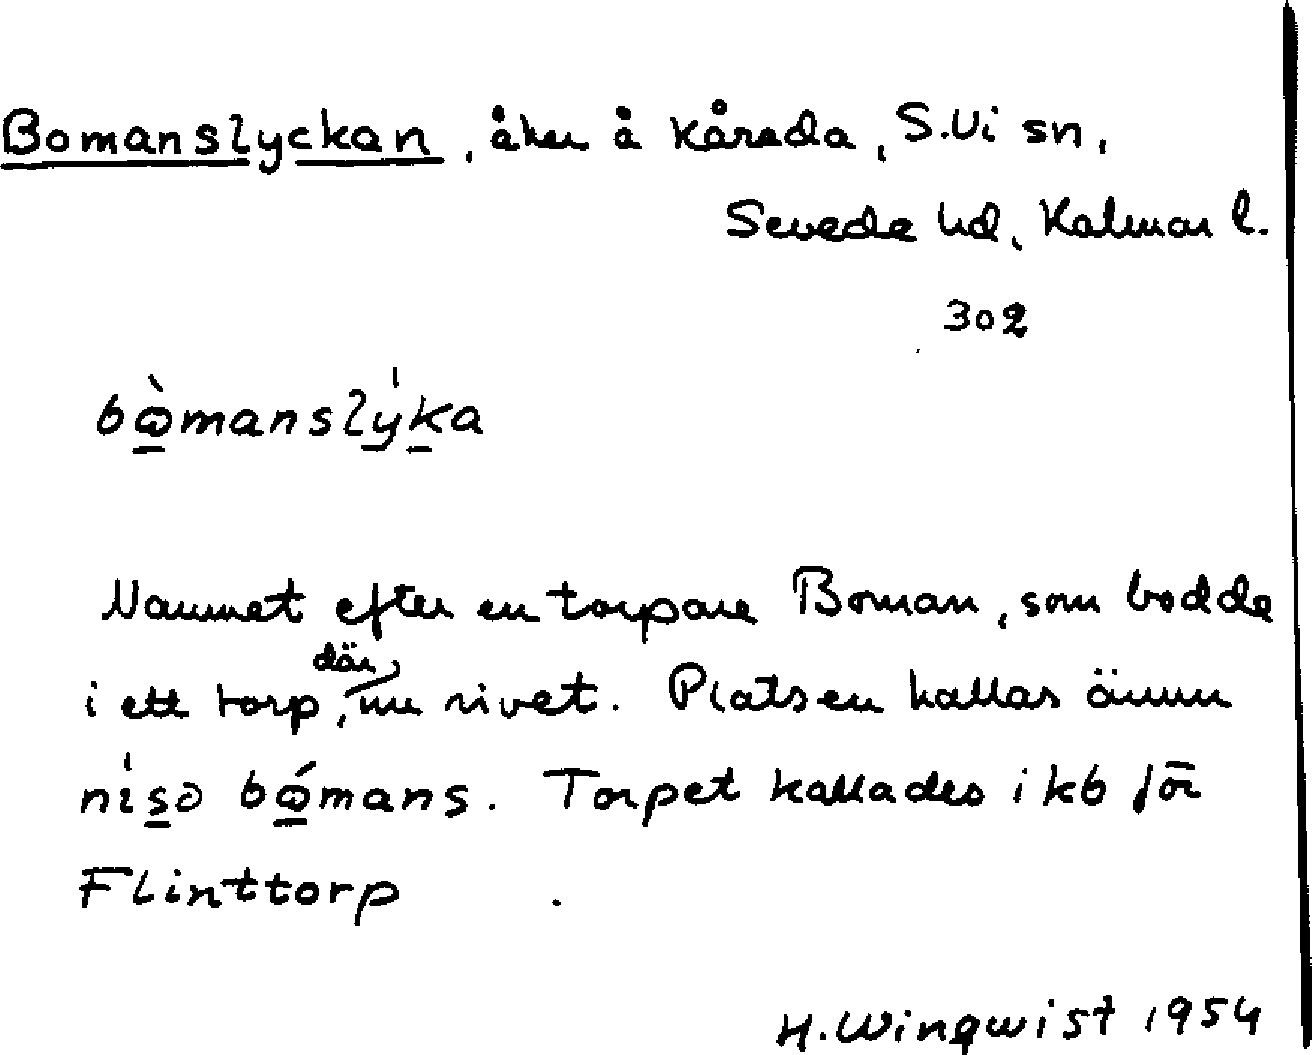 Bomanslyckan, åker å Kårada, S.Vi sn,
Sevede hd, Kalmar l.
302
bὼmanslýka
Namnet efter en torpare Boman, som bodde
i ett torp där, nu rivet. Platsen kallas ännu
nisɔ bώmans. Torpet kallades i kb för
Flinttorp .
H. Winqwist 1954